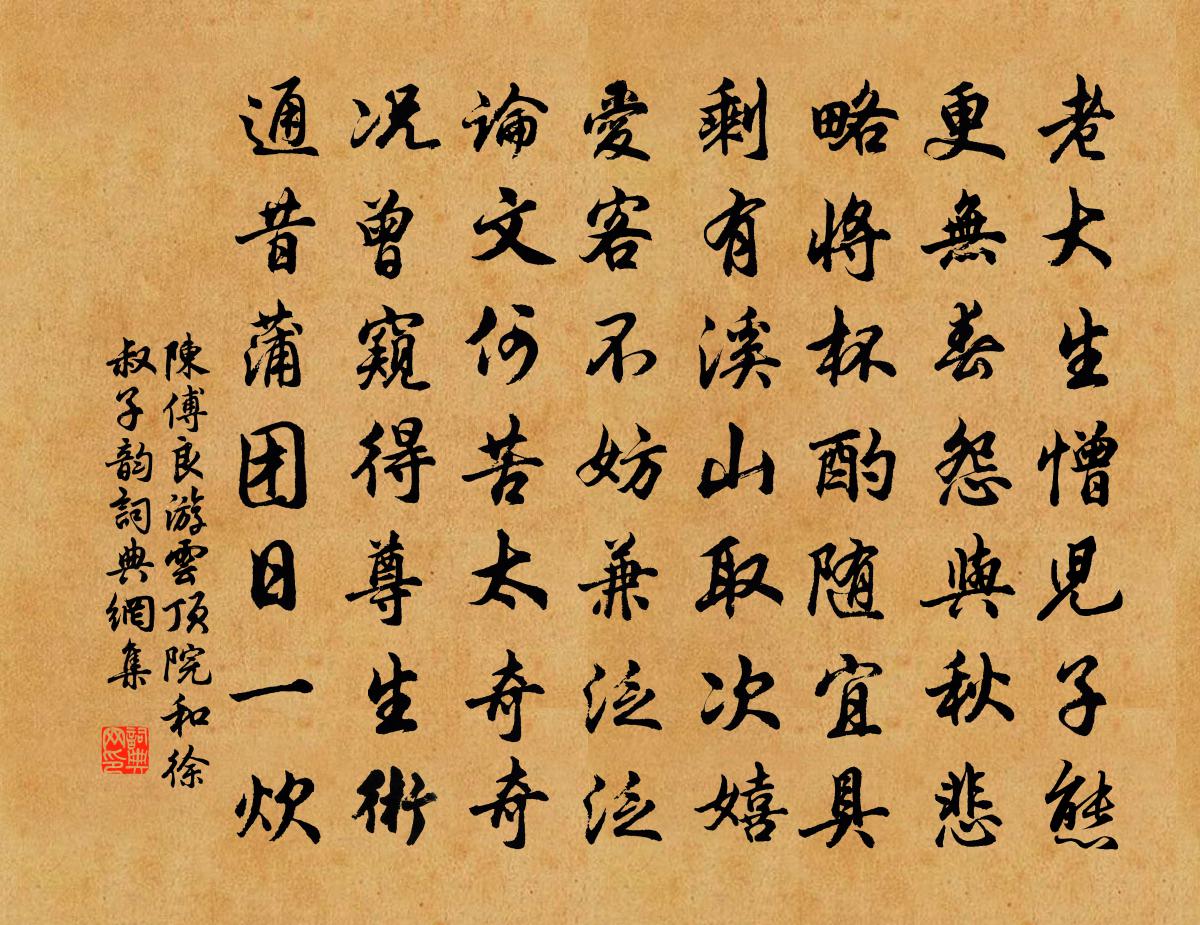 老大生憎児子態
更無春怨與秋悲
略將杯酌随宜具
剩有溪山取次嬉
愛客不妨兼泛泛
論文何苦太奇奇
況曾窺得尊生術
通昔蒲团日一炊
陳傅良游雲頂院和徐
叔子韵詞典網集
詞典网印